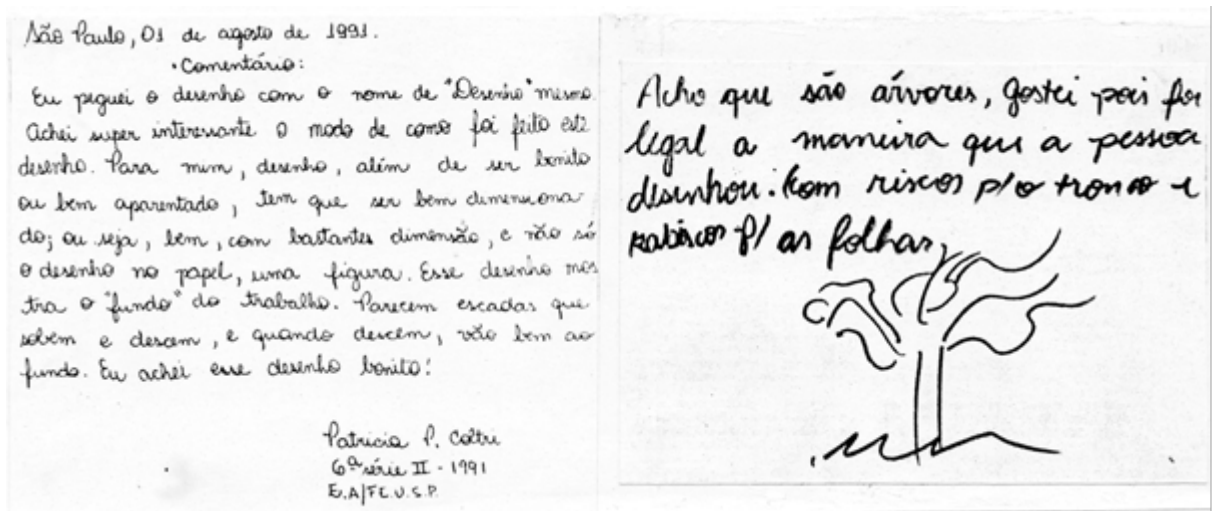 São Paulo, 01 de agosto de 1991.
• Comentário:
Eu peguei o desenho com o nome de "Desenho" mesmo.
Achei super interessante o modo de como foi feito este
desenho. Para mim, desenho, além de ser bonito
ou bem aparentado, tem que ser bem dimensiona-
do; ou seja, bem, com bastantes dimensão, e não só
o desenho no papel, uma figura. Esse desenho mos
tra o "fundo" do trabalho. Parecem escadas que
sobem e descem, e quando descem, vão bem ao
fundo. Eu achei esse desenho bonito!
Patricia P. Coltri
6ª série II - 1991
E.A/FE.U.S.P.
Acho que são árvores, gostei pois foi
legal a maneira que a pessoa
desenhou. Com riscos p/ o tronco e
rabiscos p/ as folhas,